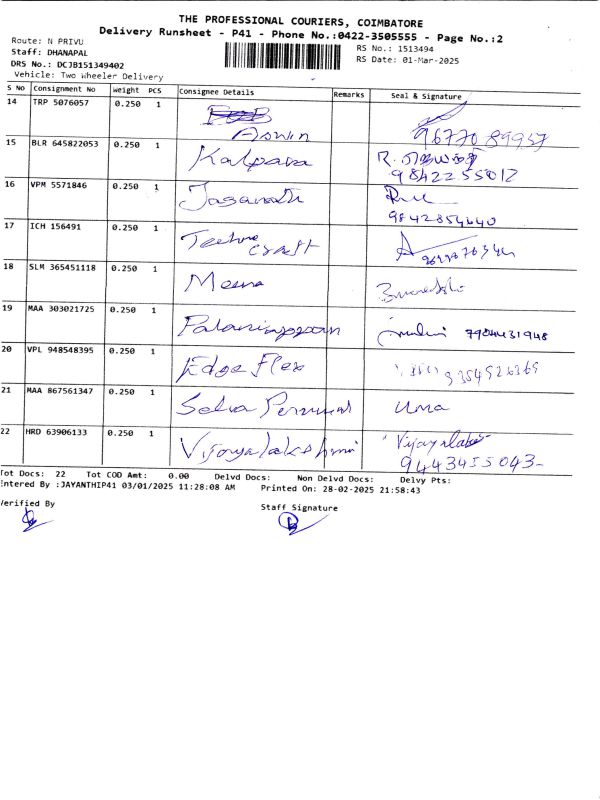 THE PROFESSIONAL COURIERS, COIMBATORE
Delivery Runsheet - P41 - Phone No.:0422-3505555 - Page No.:2
Route: N PRIVU
RS No.: 1513494
Staff: DHANAPAL
RS Date: 01-Mar-2025
DRS No.: DCJB151349402
Vehicle: Two Wheeler Delivery
S No Consignment No Weight PCS Consignee Details Remarks Seal & Signature
14 TRP 5076057 0.250 1 Aswin
15 BLR 645822053 0.250 1 Kalpana R.
9842255012
16 VPM 5571846 0.250 1 Jaganath
9842854440
17 ICH 156491 0.250 1 craft
18 SLM 365451118 0.250 1 Meena
19 MAA 303021725 0.250 1 Palaniappan 7904431948
20 VPL 948548395 0.250 1 Edge Flex
21 MAA 867561347 0.250 1 Selva Perumal Uma
22 HRD 63906133 0.250 1 Vijayalakshmi
9443455043
Tot Docs: 22 Tot COD Amt: 0.00 Delvd Docs: Non Delvd Docs: Delvy Pts:
Entered By :JAYANTHIP41 03/01/2025 11:28:08 AM Printed On: 28-02-2025 21:58:43
Verified By
Staff Signature